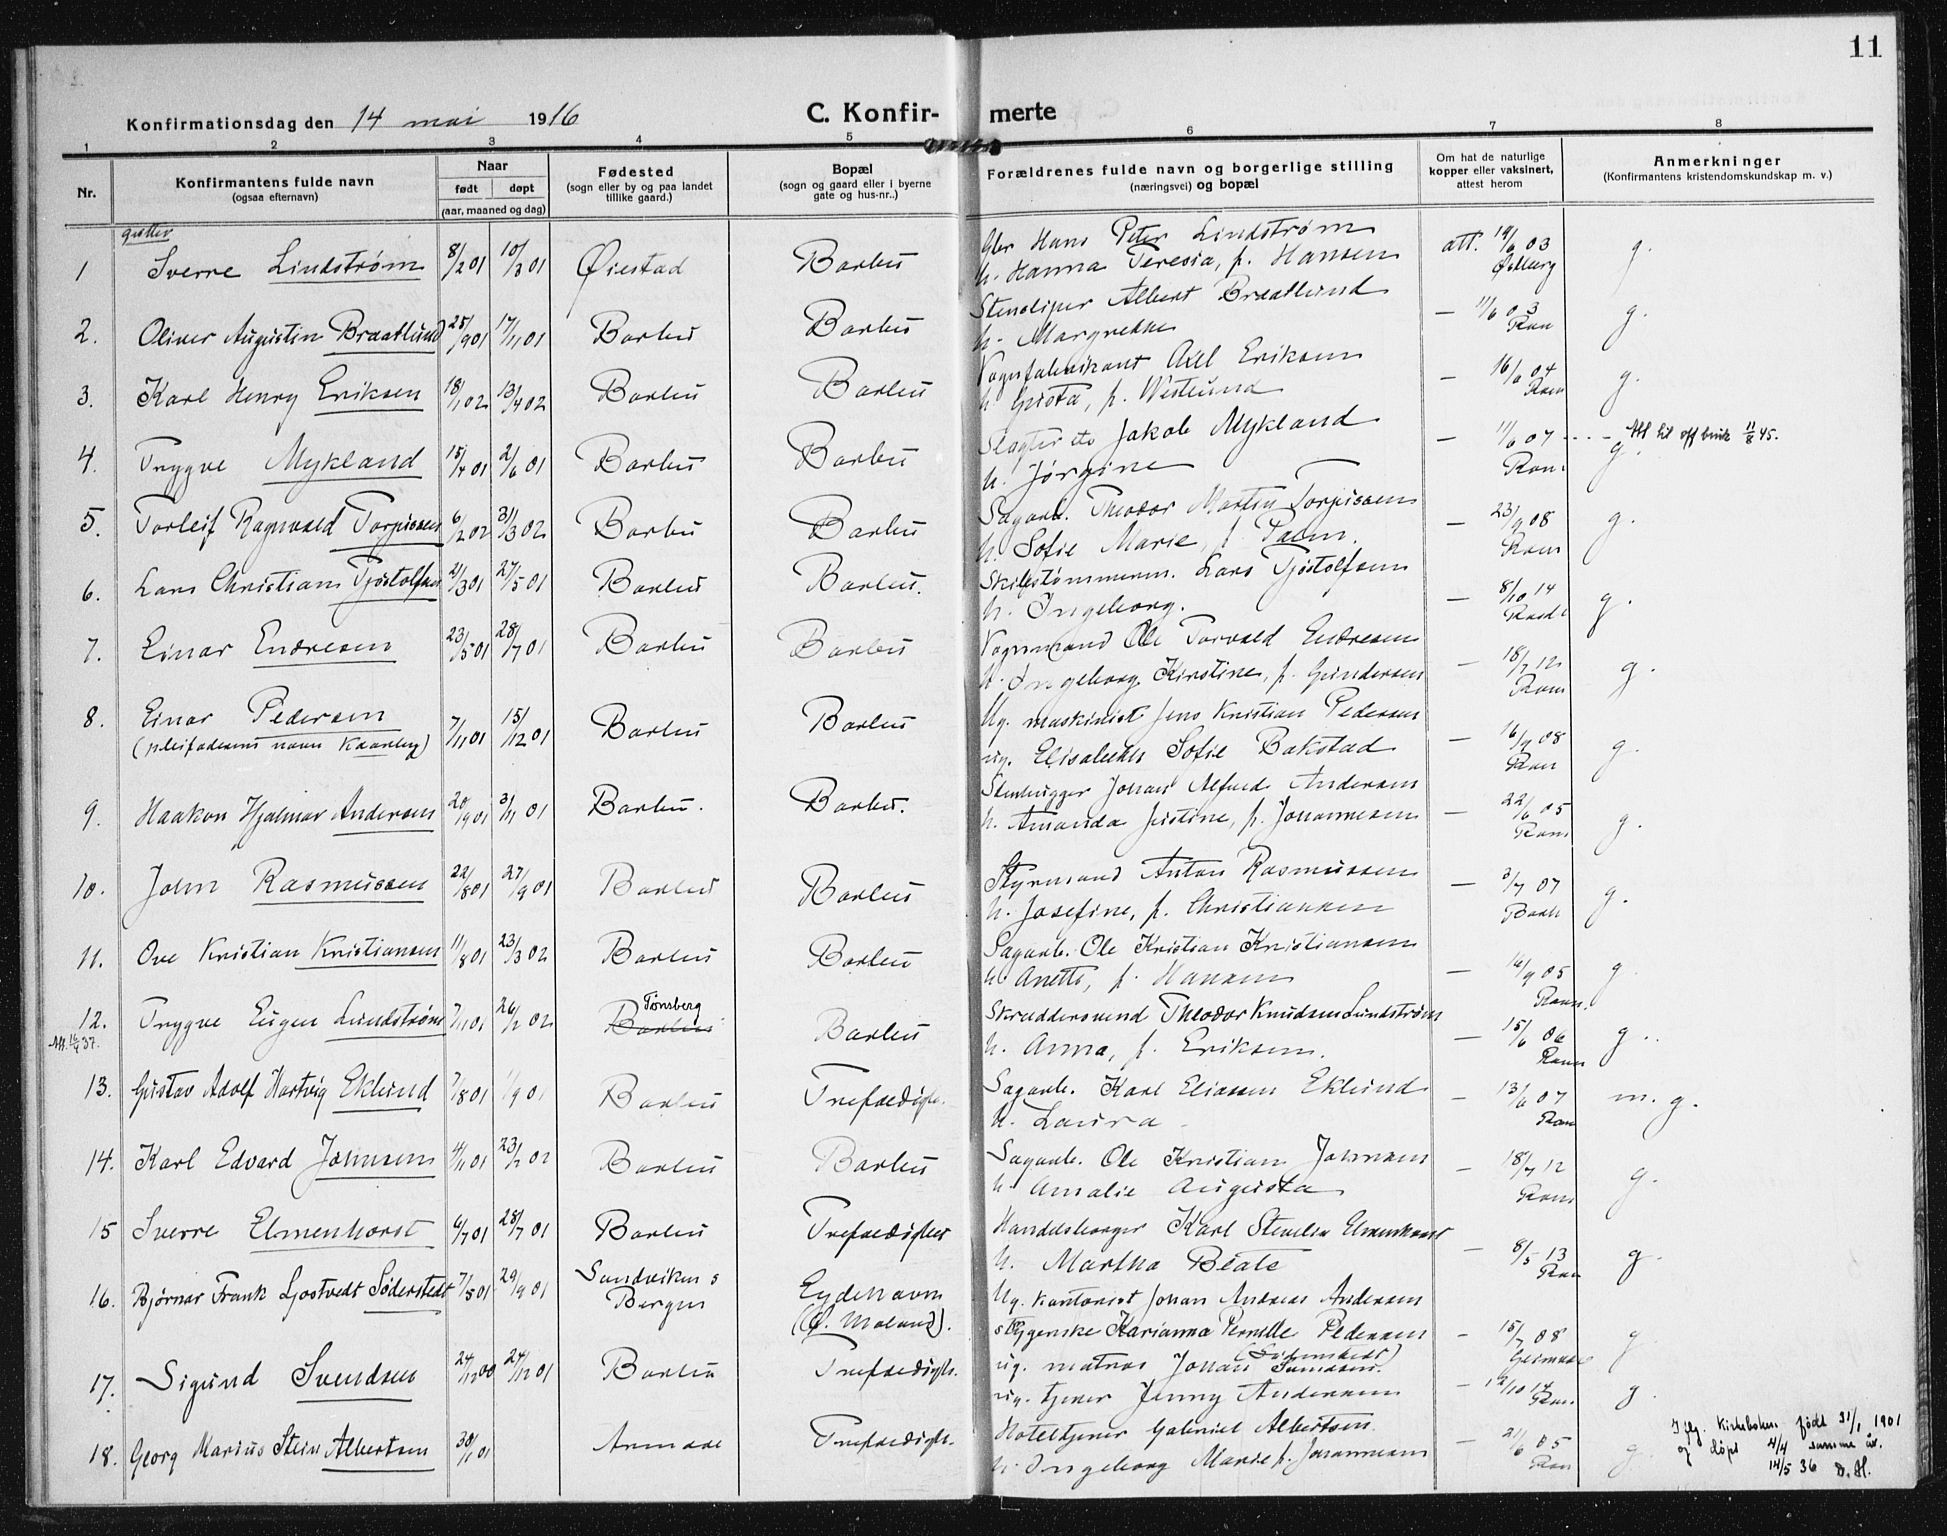 11
Konfirmationsdag den 14 mai 1916
C. Konfir- merte
1 2 3 4 5 6 7 8
Nr.
Konfirmantens fulde navn
(ogsaa efternavn)
Naar
født døpt
(aar, maaned og dag)
Fødested
(sogn eller by og paa landet
tillike gaard.)
Bopæl
(sogn og gaard eller i byerne
gate og hus-nr..)
Forældrenes fulde navn og borgerlige stilling
(næringsvei) og bopæl
Om hat de naturlige
kopper eller vaksinert,
attest herom
Anmerkninger
(Konfirmantens kristendomskundskap m. v.)
gutter
1 Sverre Lindstrøm 8/2 01 10/3 01 Øiestad Barbu Hans Peter Lindstrøm att. 19/6 03 g.
h. Hanna Teresia, f. Hansen
2. Oliver Augustin Braatlund 25/9 01 17/11 01 Barbu Barbu Albert Braatlund — 11/6 03 g.
h. Margrethe
3. Karl Henry Eriksen 18/1 02 13/4 02 Barbu Barbu Vognfabrikant Axel Eriksen — 16/6 04 g.
h. Gusta, f. Westlund
4. Trygve Mykland 15/4 01 2/6 01 Barbu Barbu Slagter Jakob Mykland — 11/6 07 g. Att til off bruk 11/8 45.
h. Jørgine
5. Torleif Ragnvald Torjussen 6/2 02 31/3 02 Barbu Barbu Sagarb. Theodor Martin Torjussen — 23/9 08 g.
h. Sofie Marie, f. Palm.
6. Lars Christian Tjøstolfsen 21/3 01 27/5 01 Barbu Barbu. Skibstømmerm. Lars Tjøstolfsen — 8/10 14 g.
h. Ingeborg.
7. Einar Endresen 23/5 01 28/7 01 Barbu Barbu Vognmand Ole Torvald Endresen — 18/7 12 g.
h. Ingeborg Kirstine, f. Gundersen
8. Einar Pedersen 7/11 01 15/12 01 Barbu Barbu Ug. maskinist Jens Kristian Pedersen — 16/9 08 g.
(pleifaderens navn Kaarberg) ug. Elisabeth Sofie Bakstad
9. Haakon Hjalmar Andersen 20/9 01 3/11 01 Barbu. Barbu. Stenhugger Johan Alfred Andersen — 22/6 05 g.
h. Amanda Justine, f. Johannesen
10. John Rasmussen 22/8 01 27/9 01 Barbu Barbu Styrmand Anton Rasmussen — 3/7 07 g.
h. Josefine, f. Christiansen
11. Ove Kristian Kristiansen 11/8 01 23/3 02 Barbu Barbu Sagarb. Ole Kristian Kristiansen — 16/9 05 g.
h. Anette, f. Hansen
12. Trygve Eugen Lundstrøm 7/11 01 26/2 02 Tønsberg Barbu Barbu Skræddersvend Theodor Knudsen Lundstrøm — 15/6 06 g.
h. Anna, f. Eriksen.
13. Gustav Adolf Hartvig Eklund 7/8 01 1/9 01 Barbu Trefoldigh. Sagarb. Karl Eliassen Eklund — 13/6 07 m. g.
h. Laura
14. Karl Edvard Johnsen 4/11 01 23/2 02 Barbu Barbu Sagarb. Ole Kristian Johnsen — 18/7 12 g.
h. Amalie Augusta
15 Sverre Elmenhorst 6/7 01 28/7 01 Barbu Trefoldighet Handelsborger Karl Elmenhorst — 8/5 13 g.
h. Martha Beate
16. Bjørnar Frank Söderstedt 7/5 01 29/9 01 Sandvikens Eydehavn Ug. kontorist Johan Andreas Andersen
Bergen (Ø. Moland). Karianna Pernille Pedersen — 15/7 08 g.
17. Sigurd Svendsen 24/12 00 24/12 01 Barbu Trefoldigh. ug. matros Johan Svendsen. — 12/10 14 g.
ug. tjener Jenny Andersen
18. Georg Marius Stein Albertsen 30/1 01 Trefoldigh. Hoteltjener Gabriel Albertsen — 21/6 05 g.
h. Ingeborg Marie f. Johannesen
Iflg. Kirkeboken født 31/1 1901
og døpt 4/4 samme år.
14/5 36 D. H.